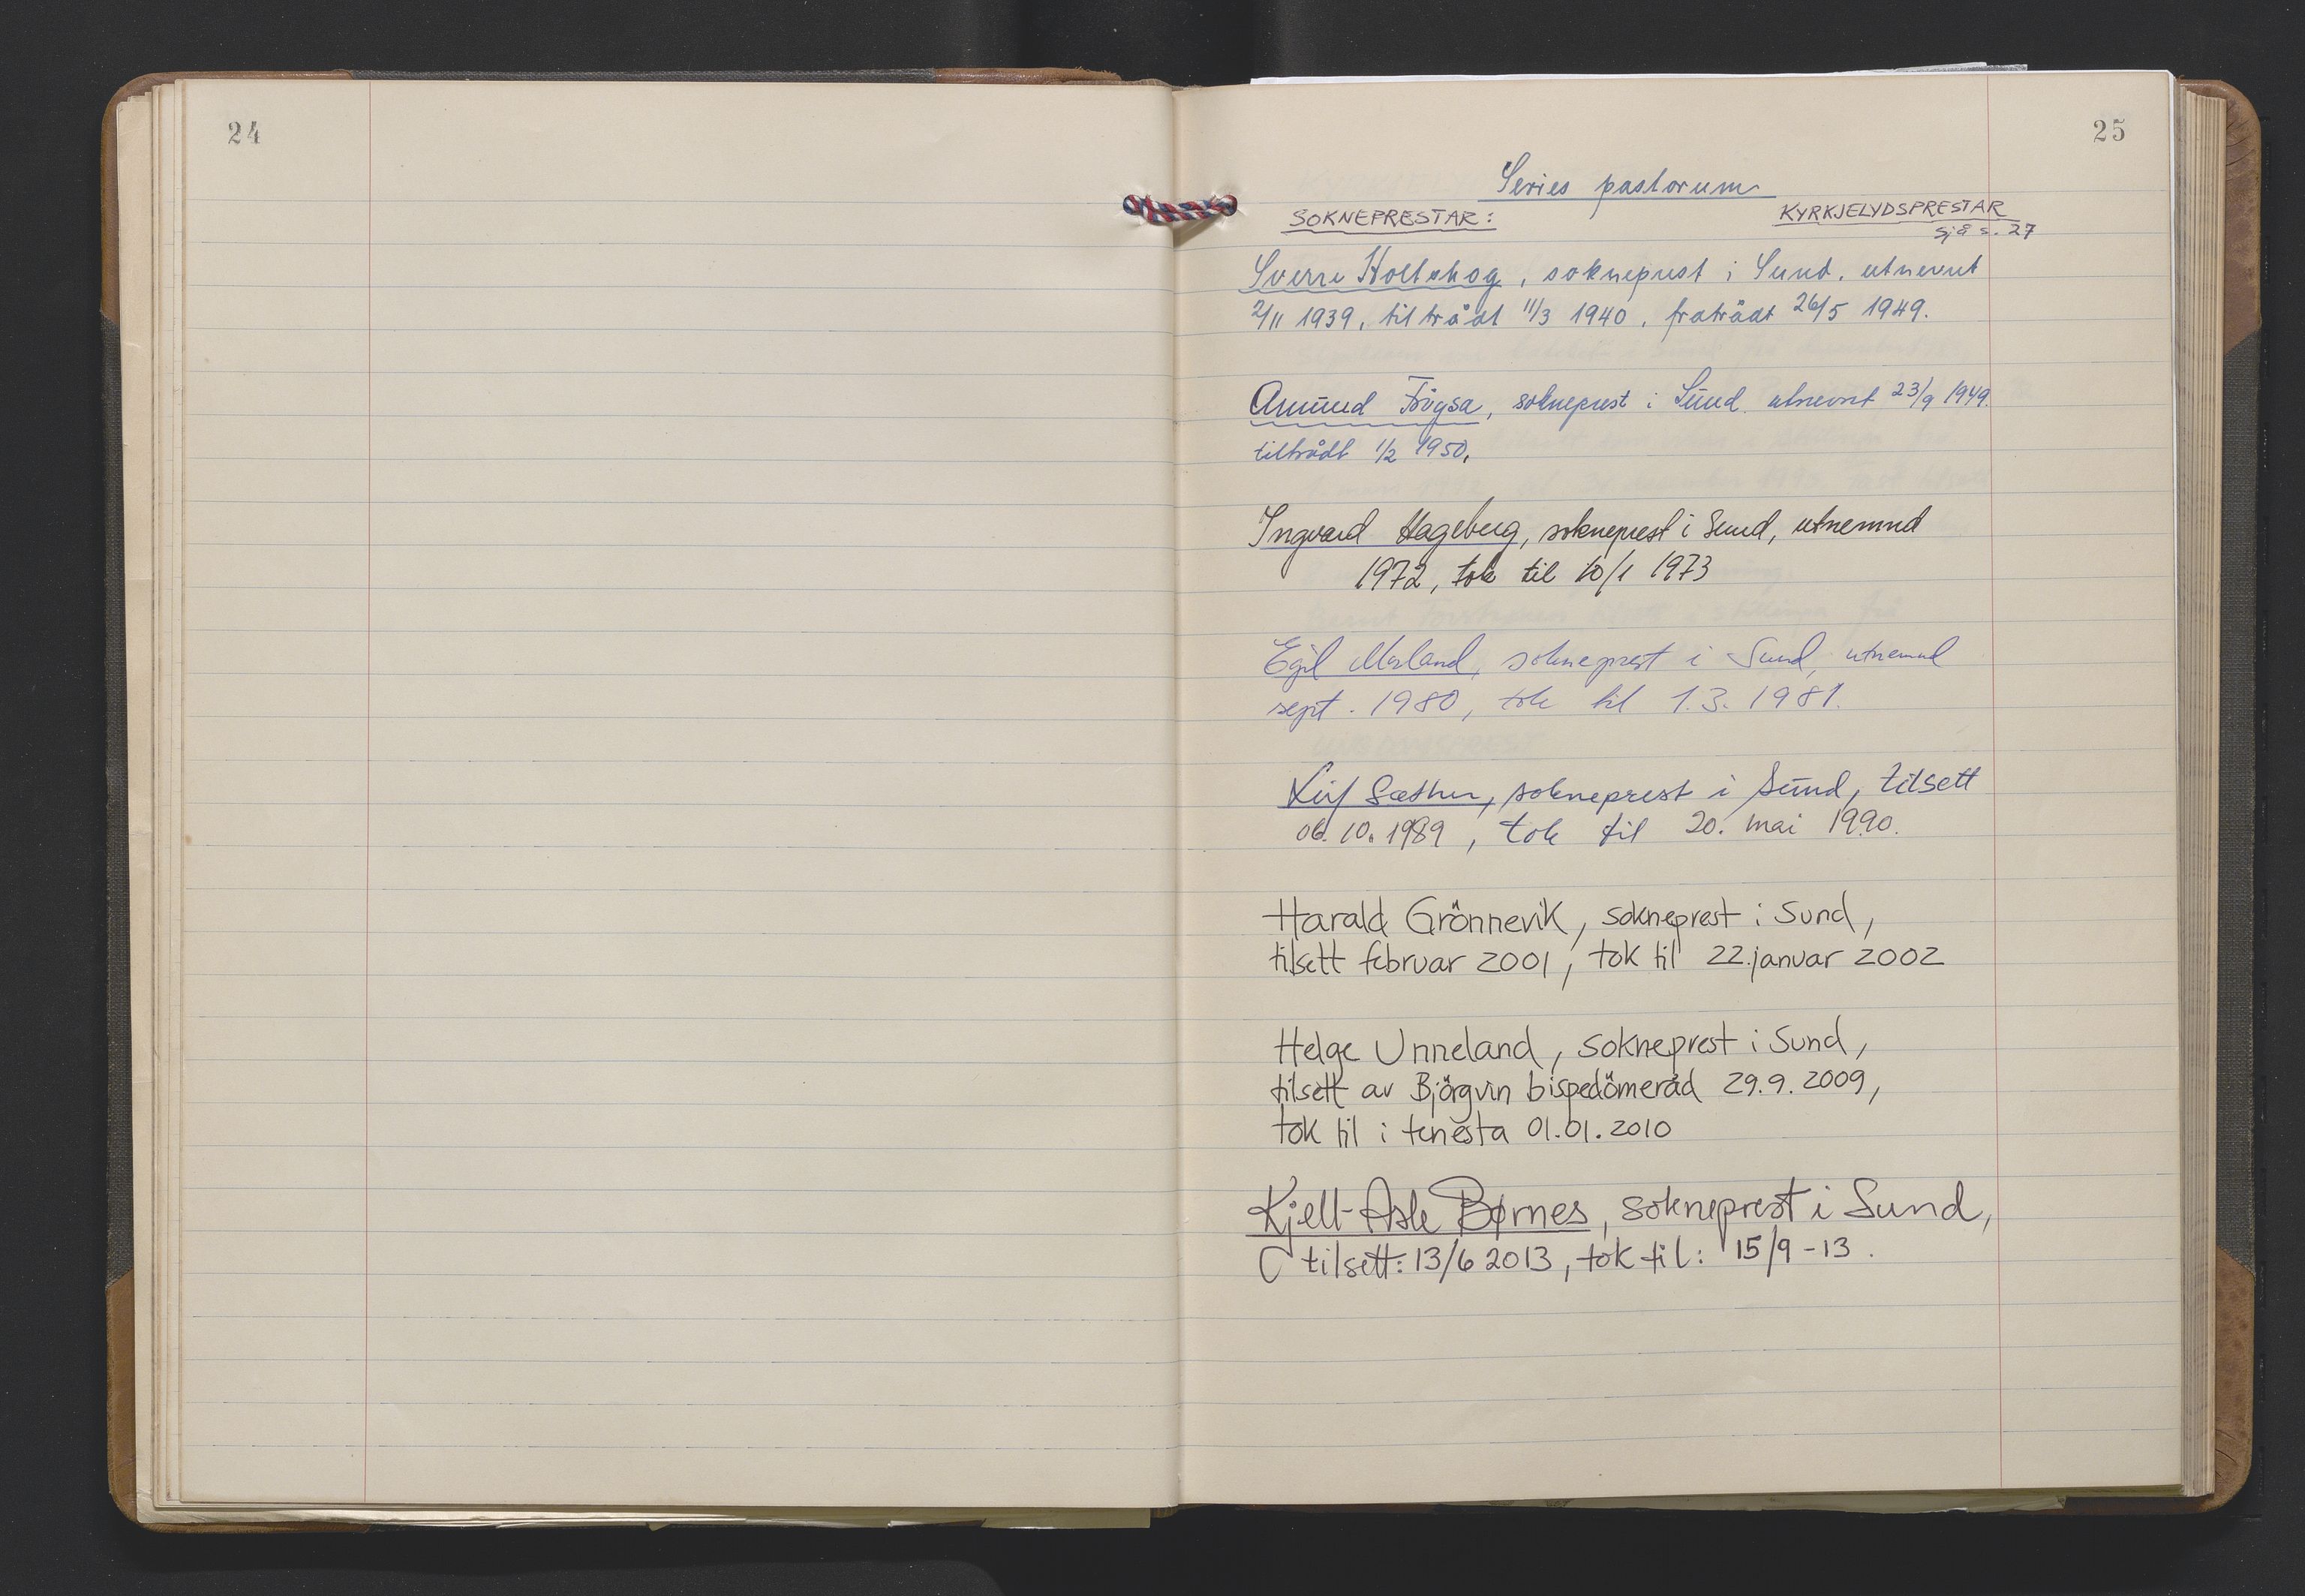 24
25
Series pastorum
SOKNEPRESTAR:
KYRKJELYDSPRESTAR
sjå s. 27
Sverre Holtskog, sokneprest i Sund, utnevnt
2/11 1939, tiltrådt 11/3 1940, fratrådt 26/5 1949.
Amund, sokneprest i Sund utnevnt 23/9 1949.
tiltrådt 1/2 1950.
Ingvard Hageberg, sokneprest i Sund, utnemnd
1972, tok til 10/1 1973
Egil Morland, sokneprest i Sund, utnemnd
sept. 1980, tok til 1.3.1981.
Leif Sæther, sokneprest i Sund, tilsett
06.10.1989, tok til 20. mai 1990.
Harald Grönnevik, sokneprest i Sund,
tilsett februar 2001, tok til 22. januar 2002
Helge Unneland, sokneprest i Sund,
tilsett av Björgvin bispedömeråd 29.9.2009,
tok til i tenesta 01.01.2010
Kjell-Asle Børnes, sokneprest i Sund,
tilsett: 13/6 2013, tok til: 15/9-13.